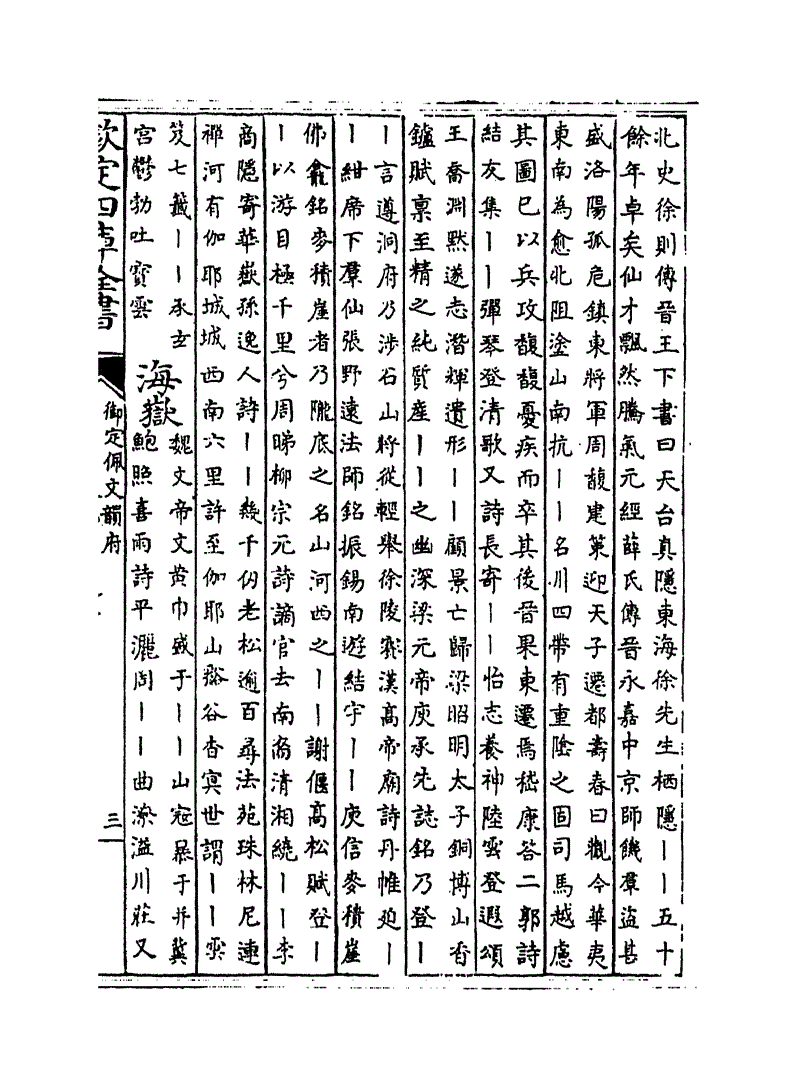 北史徐則傳晉王下書曰天台真隱東海徐先生栖隱丨丨五十
餘年卓矣仙才飄然騰氣元經薛氏傳晉永嘉中京師饑羣盗甚
盛洛陽孤危鎮東將軍周馥建策迎天子遷都壽春曰觀今華夷
東南為愈北阻塗山南抗丨丨名川四帶有重險之固司馬越慮
其圖已以兵攻馥馥憂疾而卒其後晉果東遷焉嵇康答二郭詩
結友集丨丨彈琴登清歌又詩長寄丨丨怡志養神陸雲登遐頌
王喬淵黙遂志潛輝遺形丨丨顧景亡歸梁昭明太子銅博山香
鑪賦禀至精之純質産丨丨之幽深梁元帝庾承先誌銘乃登丨
丨言遵洞府乃涉石山將從輕舉徐陵賽漢高帝廟詩丹帷迫丨
丨紺席下羣仙張野遠法師銘振錫南遊結宇丨丨庾信麥積崖
佛龕銘麥積崖者乃隴底之名山河西之丨丨謝偃高松賦登丨
丨以游目極千里兮周睇柳宗元詩謫官去南裔清湘繞丨丨李
商隱寄華嶽孫逸人詩丨丨幾千仭老松逾百尋法苑珠林尼連
禪河有伽耶城城西南六里許至伽耶山谿谷杳冥世謂丨丨雲
笈七籤丨丨承玄
宮鬱勃吐寳雲
海嶽
魏文帝文黄巾盛于丨丨山寇暴于并冀
鮑照喜雨詩平灑周丨丨曲潦溢川莊又
欽定四庫全書
御定佩文韻府
三